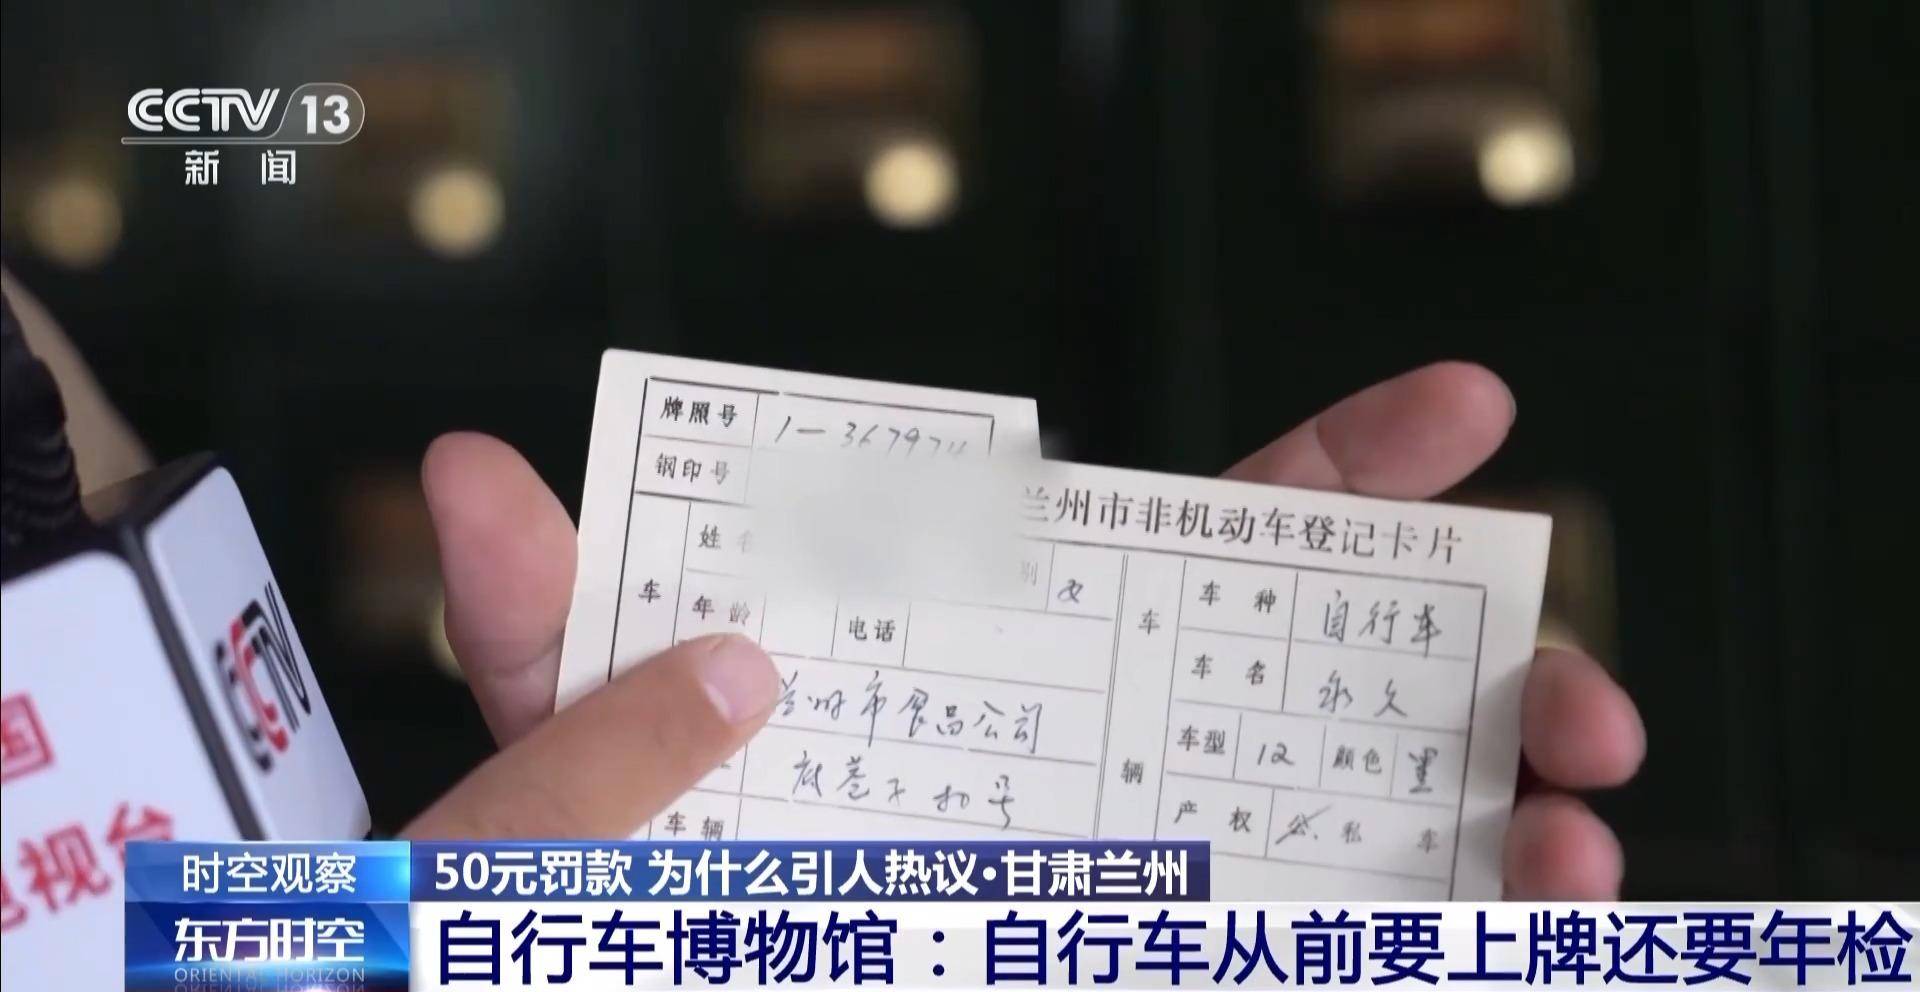 CCTV 13
新闻
牌照号 1-36797
钢印号
兰州市非机动车登记卡片
姓名
别 女
车
年龄
电话
兰州市食品公司
号
车辆
车
辆
车种 自行车
车名 永久
车型 12 颜色 黑
产权 公、私 车
CCTV
国
电视台
时空观察
50元罚款 为什么引人热议·甘肃兰州
东方时空
ORIENTAL HORIZON
自行车博物馆：自行车从前要上牌还要年检